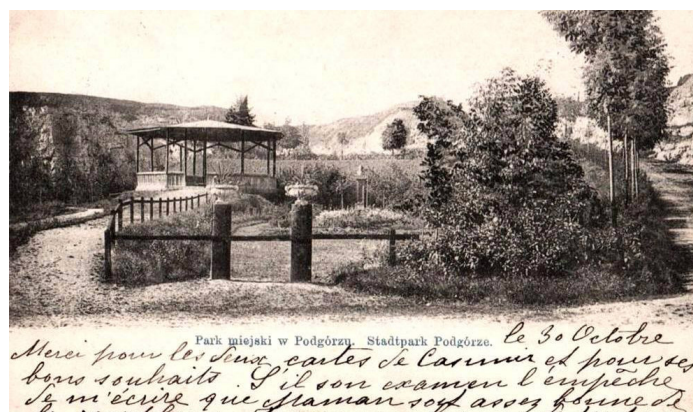 Park miejski w Podgórzu. Stadtpark Podgórze.
le 30 Octobre
Merci pour les deux cartes de Casimir et pour ses
bons souhaits. S'il son examen l'empêche
de m'écrire que Maman soit assez bonne de